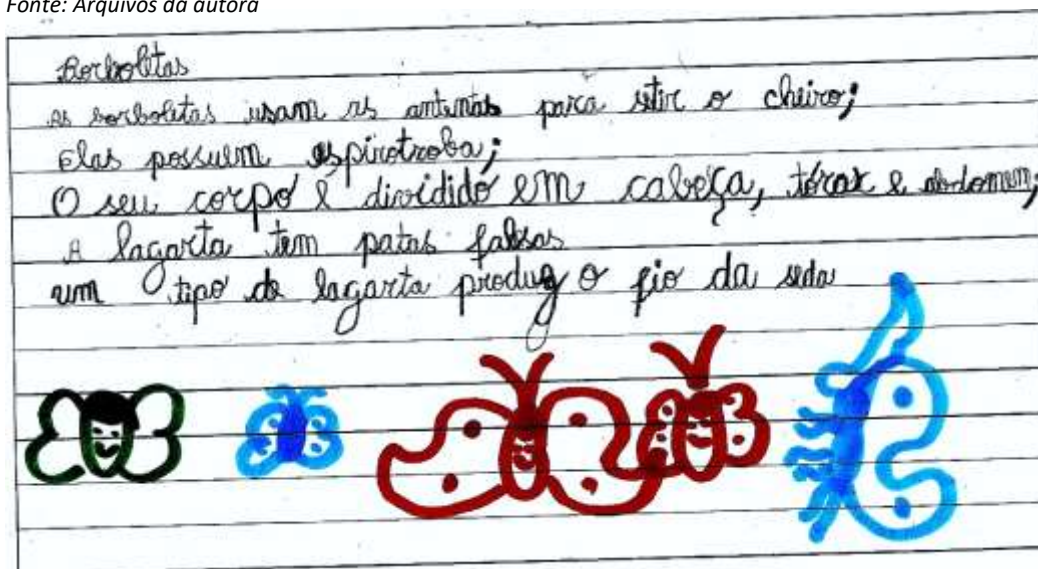 Fonte: Arquivos da autora
Borboletas
As borboletas usam as antenas para stir o cheiro;
Elas possuem espirotroba;
O seu corpo é dividido em cabeça, tórax e abdomen;
A lagarta tem patas falsas
um tipo de lagarta produz o fio da seda